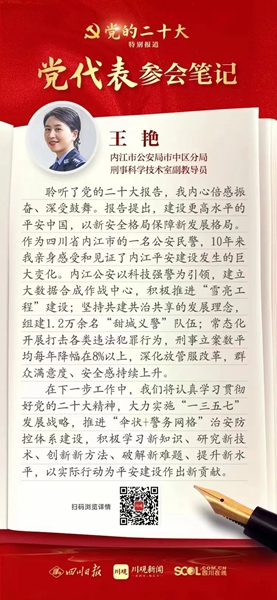 党的二十大
特别报道
党代表参会笔记
王 艳
内江市公安局市中区分局
刑事科学技术室副教导员
聆听了党的二十大报告，我内心倍感振
奋、深受鼓舞。报告提出，建设更高水平的
平安中国，以新安全格局保障新发展格局。
作为四川省内江市的一名公安民警，10年来
我亲身感受和见证了内江平安建设发生的巨
大变化。内江公安以科技强警为引领，建立
大数据合成作战中心，积极推进“雪亮工
程”建设；坚持共建共治共享的发展理念，
组建1.2万余名“甜城义警”队伍；常态化
开展打击各类违法犯罪行为，刑事立案数平
均每年降幅在8%以上，深化放管服改革，群
众满意度、安全感持续上升。
在下一步工作中，我们将认真学习贯彻
好党的二十大精神，大力实施“一三五七”
发展战略，推进“伞状+警务网格”治安防
控体系建设，积极学习新知识、研究新技
术、创新新方法、破解新难题、提升新水
平，以实际行动为平安建设作出新贡献。
扫码浏览详情
四川日报
川观
川观新闻
SCOL.COM.CN
四川在线